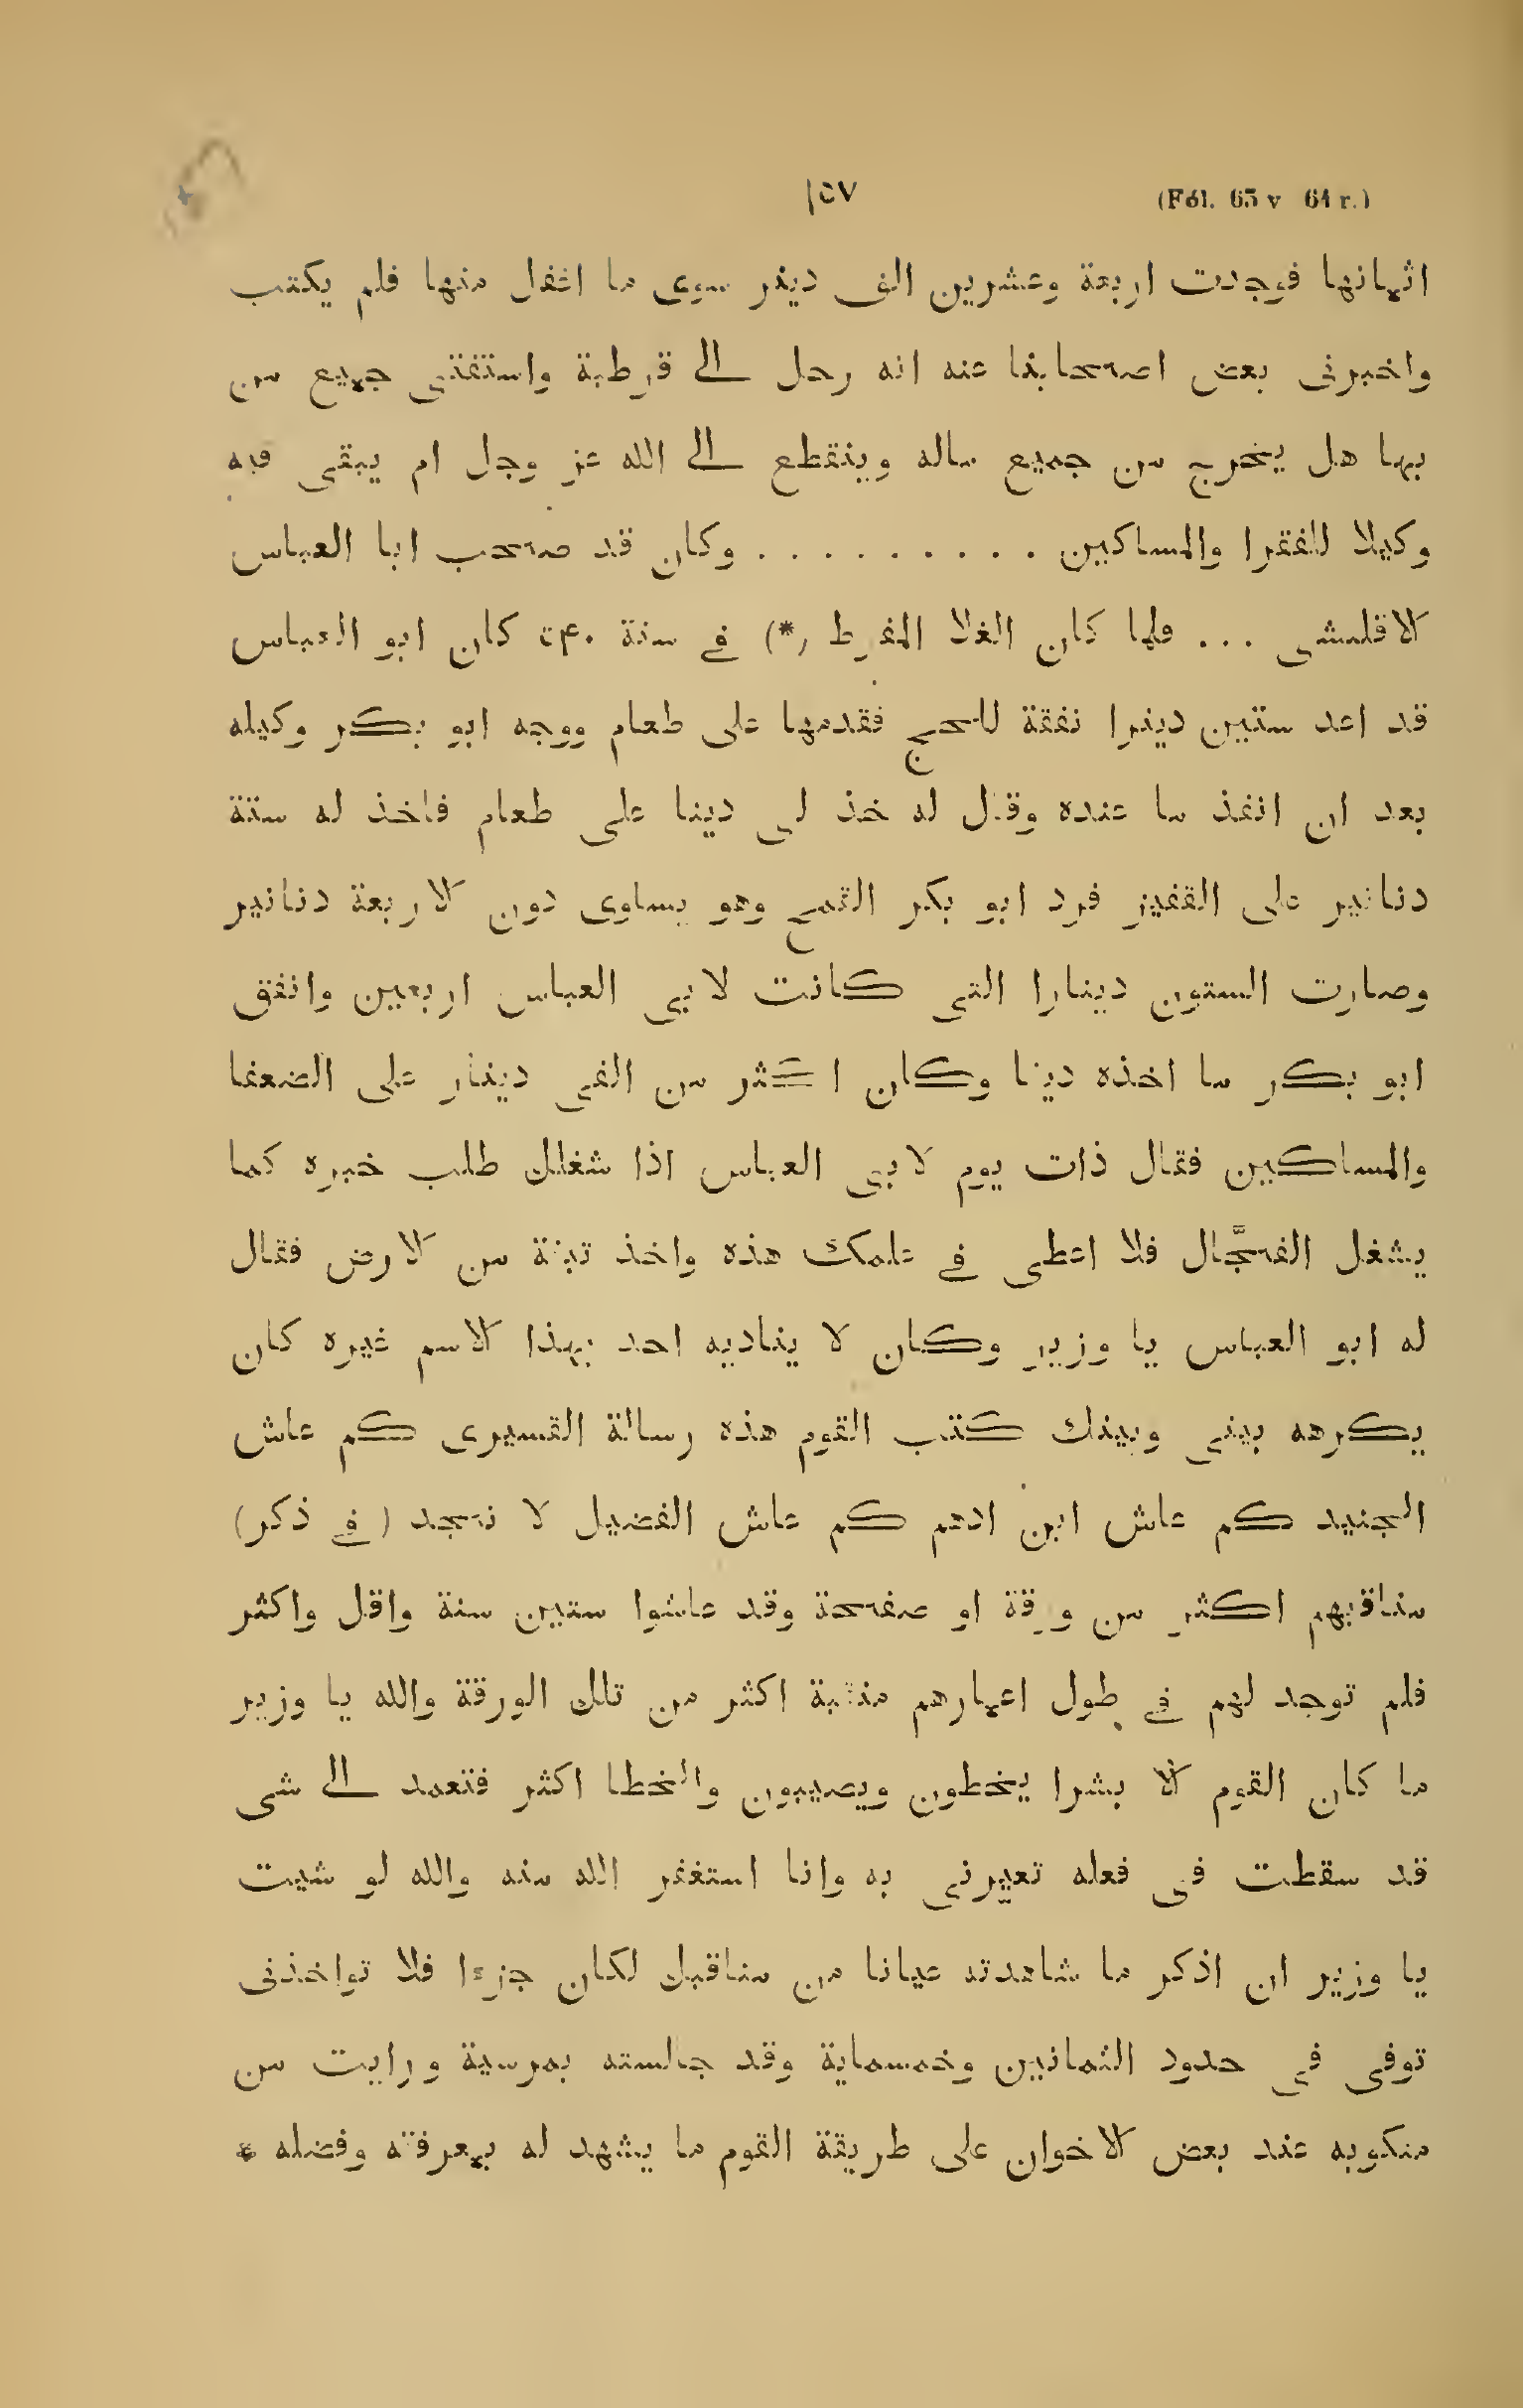 (Fól. 63 v 64 r.) ١٥٧
اثمانها فوجدت اربعة وعشرين الف دينر سوى ما اغفل منها فلم يكتب
واخبرنى بعض اصحابنا عنه انه رحل الى قرطبة واستفتى جميع من
بها هل يخرج من جميع ماله وينقطع الى الله عز وجل ام يبقى فيه
وكيلا للفقرا والمساكين . . . . . . . . . وكان قد صحب ابا العباس
الاقلشى ... فلما كان الغلا المفرط (*) فى سنة كان ابو العباس
قد اعد ستين دينرا نفقة للحج فقدمها على طعام ووجه ابو بكر وكيله
بعد ان انفذ ما عنده وقال له خذ لى دينا على طعام فاخذ له ستة
دنانير على القفيز فرد ابو بكر القمح وهو يساوى دون الاربعة دنانير
وصارت الستون دينارا التى كانت لابى العباس اربعين وانفق
ابو بكر ما اخذه دينا وكان اكثر من الفى دينار على الضعفا
والمساكين فقال ذات يوم لابى العباس اذا شغلك طلب خبره كما
يشغل الفجّال فلا اعطى فى علمك هذه واخذ تبنة من الارض فقال
له ابو العباس يا وزير وكان لا يناديه احد بهذا الاسم غيره كان
يكرهه بينى وبينك كتب القوم هذه رسالة القسيرى كم عاش
الجنيد كم عاش ابن ادهم كم عاش الفضيل لا نجد (فى ذكر)
مناقبهم اكثر من ورقة او صفحة وقد عاشوا ستين سنة واقل واكثر
فلم توجد لهم فى طول اعمارهم منقبة اكثر من تلك الورقة والله يا وزير
ما كان القوم الا بشرا يخطون ويصيبون والخطا اكثر فتعمد الى شى
قد سقطت فى فعله تعيرنى به وانا استغفر الله منه والله لو شيت
يا وزير ان اذكر ما شاهدته عيانا من مناقبك لكان جزءا فلا تواخذنى
توفى فى حدود الثمانين وخمسماية وقد جالسته بمرسية ورايت من
منكوبه عند بعض الاخوان على طريقة القوم ما يشهد له بمعرفته وفضله *